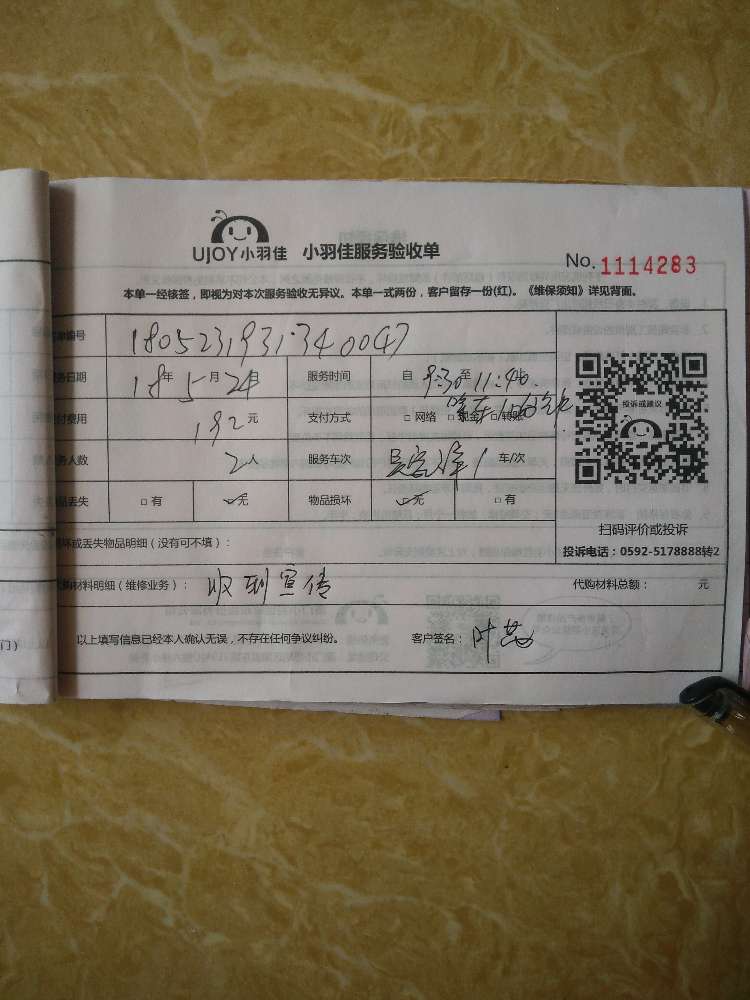 UJOY小羽佳 小羽佳服务验收单
No. 1114283
本单一经核签，即视为对本次服务验收无异议。本单一式两份，客户留存一份(红)。《维保须知》详见背面。
单编号 180523193134 0047
务日期 18年5月24日 服务时间 自 9:30至11:46
付费用 192元 支付方式 □ 网络 □ 现金 □ 转账
务人数 2人 服务车次 1 车/次
品丢失 □ 有 ☑ 无 物品损坏 ☑ 无 □ 有
投诉或建议
扫码评价或投诉
投诉电话：0592-5178888转2
坏或丢失物品明细（没有可不填）：
代购材料明细（维修业务）： 收到宣传 代购材料总额： 元
以上填写信息已经本人确认无误，不存在任何争议纠纷。 客户签名： 叶